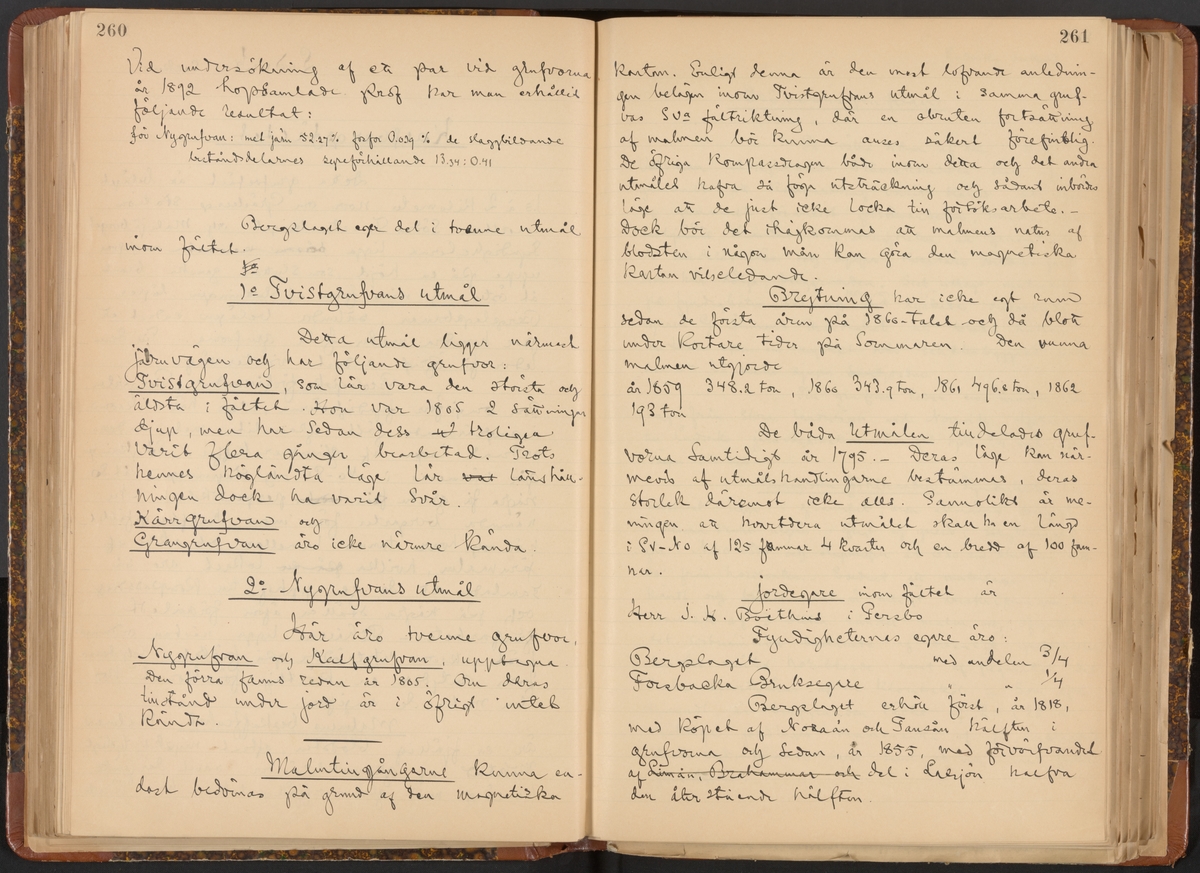 260
Vid undersökning af ett par vid grufvorna
år 1892 hopsamlade prof har man erhållit
följande resultat:
för Nygrufvan: met. järn 52.27% fosfor 0.029 % de slaggbildande
beståndsdelarnes syreförhållande 13.34 : 0.41
Bergslaget eger del i tvenne utmål
inom fältet.
1o Tvistgrufvans utmål
Detta utmål ligger närmast
järnvägen och har följande grufvor:
Tvistgrufvan, som lär vara den största och
äldsta i fältet. Hon var 1805 2 sättningar
djup, men har sedan dess troligen
varit flera gånger bearbetad. Trots
hennes högländta läge lär länshåll-
ningen dock ha varit svår.
Kärrgrufvan och
Grangrufvan äro icke närmre kända.
2o Nygrufvans utmål
Här äro tvenne grufvor,
Nygrufvan och Kalfgrufvan, upptagna.
Den förra fanns redan år 1805. Om deras
tillstånd under jord är i öfrigt intet
kändt.
Malmtillgångarne kunna en-
dast bedömas på grund af den magnetiska
261
kartan. Enligt denna är den mest lofvande anlednin-
gen belägen inom Tvistgrufvans utmål i samma gruf-
vas SVa fältriktning, där en obruten fortsättning
af malmen bör kunna anses säkert förefintlig.
De öfriga kompassdragen både inom detta och det andra
utmålet hafva så föga utsträckning och sådant inbördes
läge att de just icke locka till försöksarbete. –
Dock bör det ihågkommas att malmens natur af
blodsten i någon mån kan göra den magnetiska
kartan vilseledande.
Brytning har icke egt rum
sedan de första åren på 1860-talet och då blott
under kortare tider på sommaren. Den vunna
malmen utgjorde
år 1859 348.2 ton, 1860 343.9 ton, 1861 496.8 ton, 1862
193 ton
De båda utmålen tilldelades gruf-
vorna samtidigt år 1795. – Deras läge kan när-
mevis af utmålshandlingarne bestämmas, deras
storlek däremot icke alls. Sannolikt är me-
ningen, att hvartdera utmålet skall ha en längd
i SV-NO af 125 famnar 4 kvarter och en bredd af 100 fam-
nar.
Jordegare inom fältet är
Herr J. H. Boëthius i Persbo
Fyndigheternas egare äro:
Bergslaget med andelen 3/4
Forsbacka Bruksegare " " 1/4
Bergslaget erhöll först, år 1818,
med köpet af Norrån och Tansån hälften i
grufvorna och sedan, år 1855, med förvärfvandet
af Limån, Brohammar och del i Laxsjön halfva
den återstående hälften.